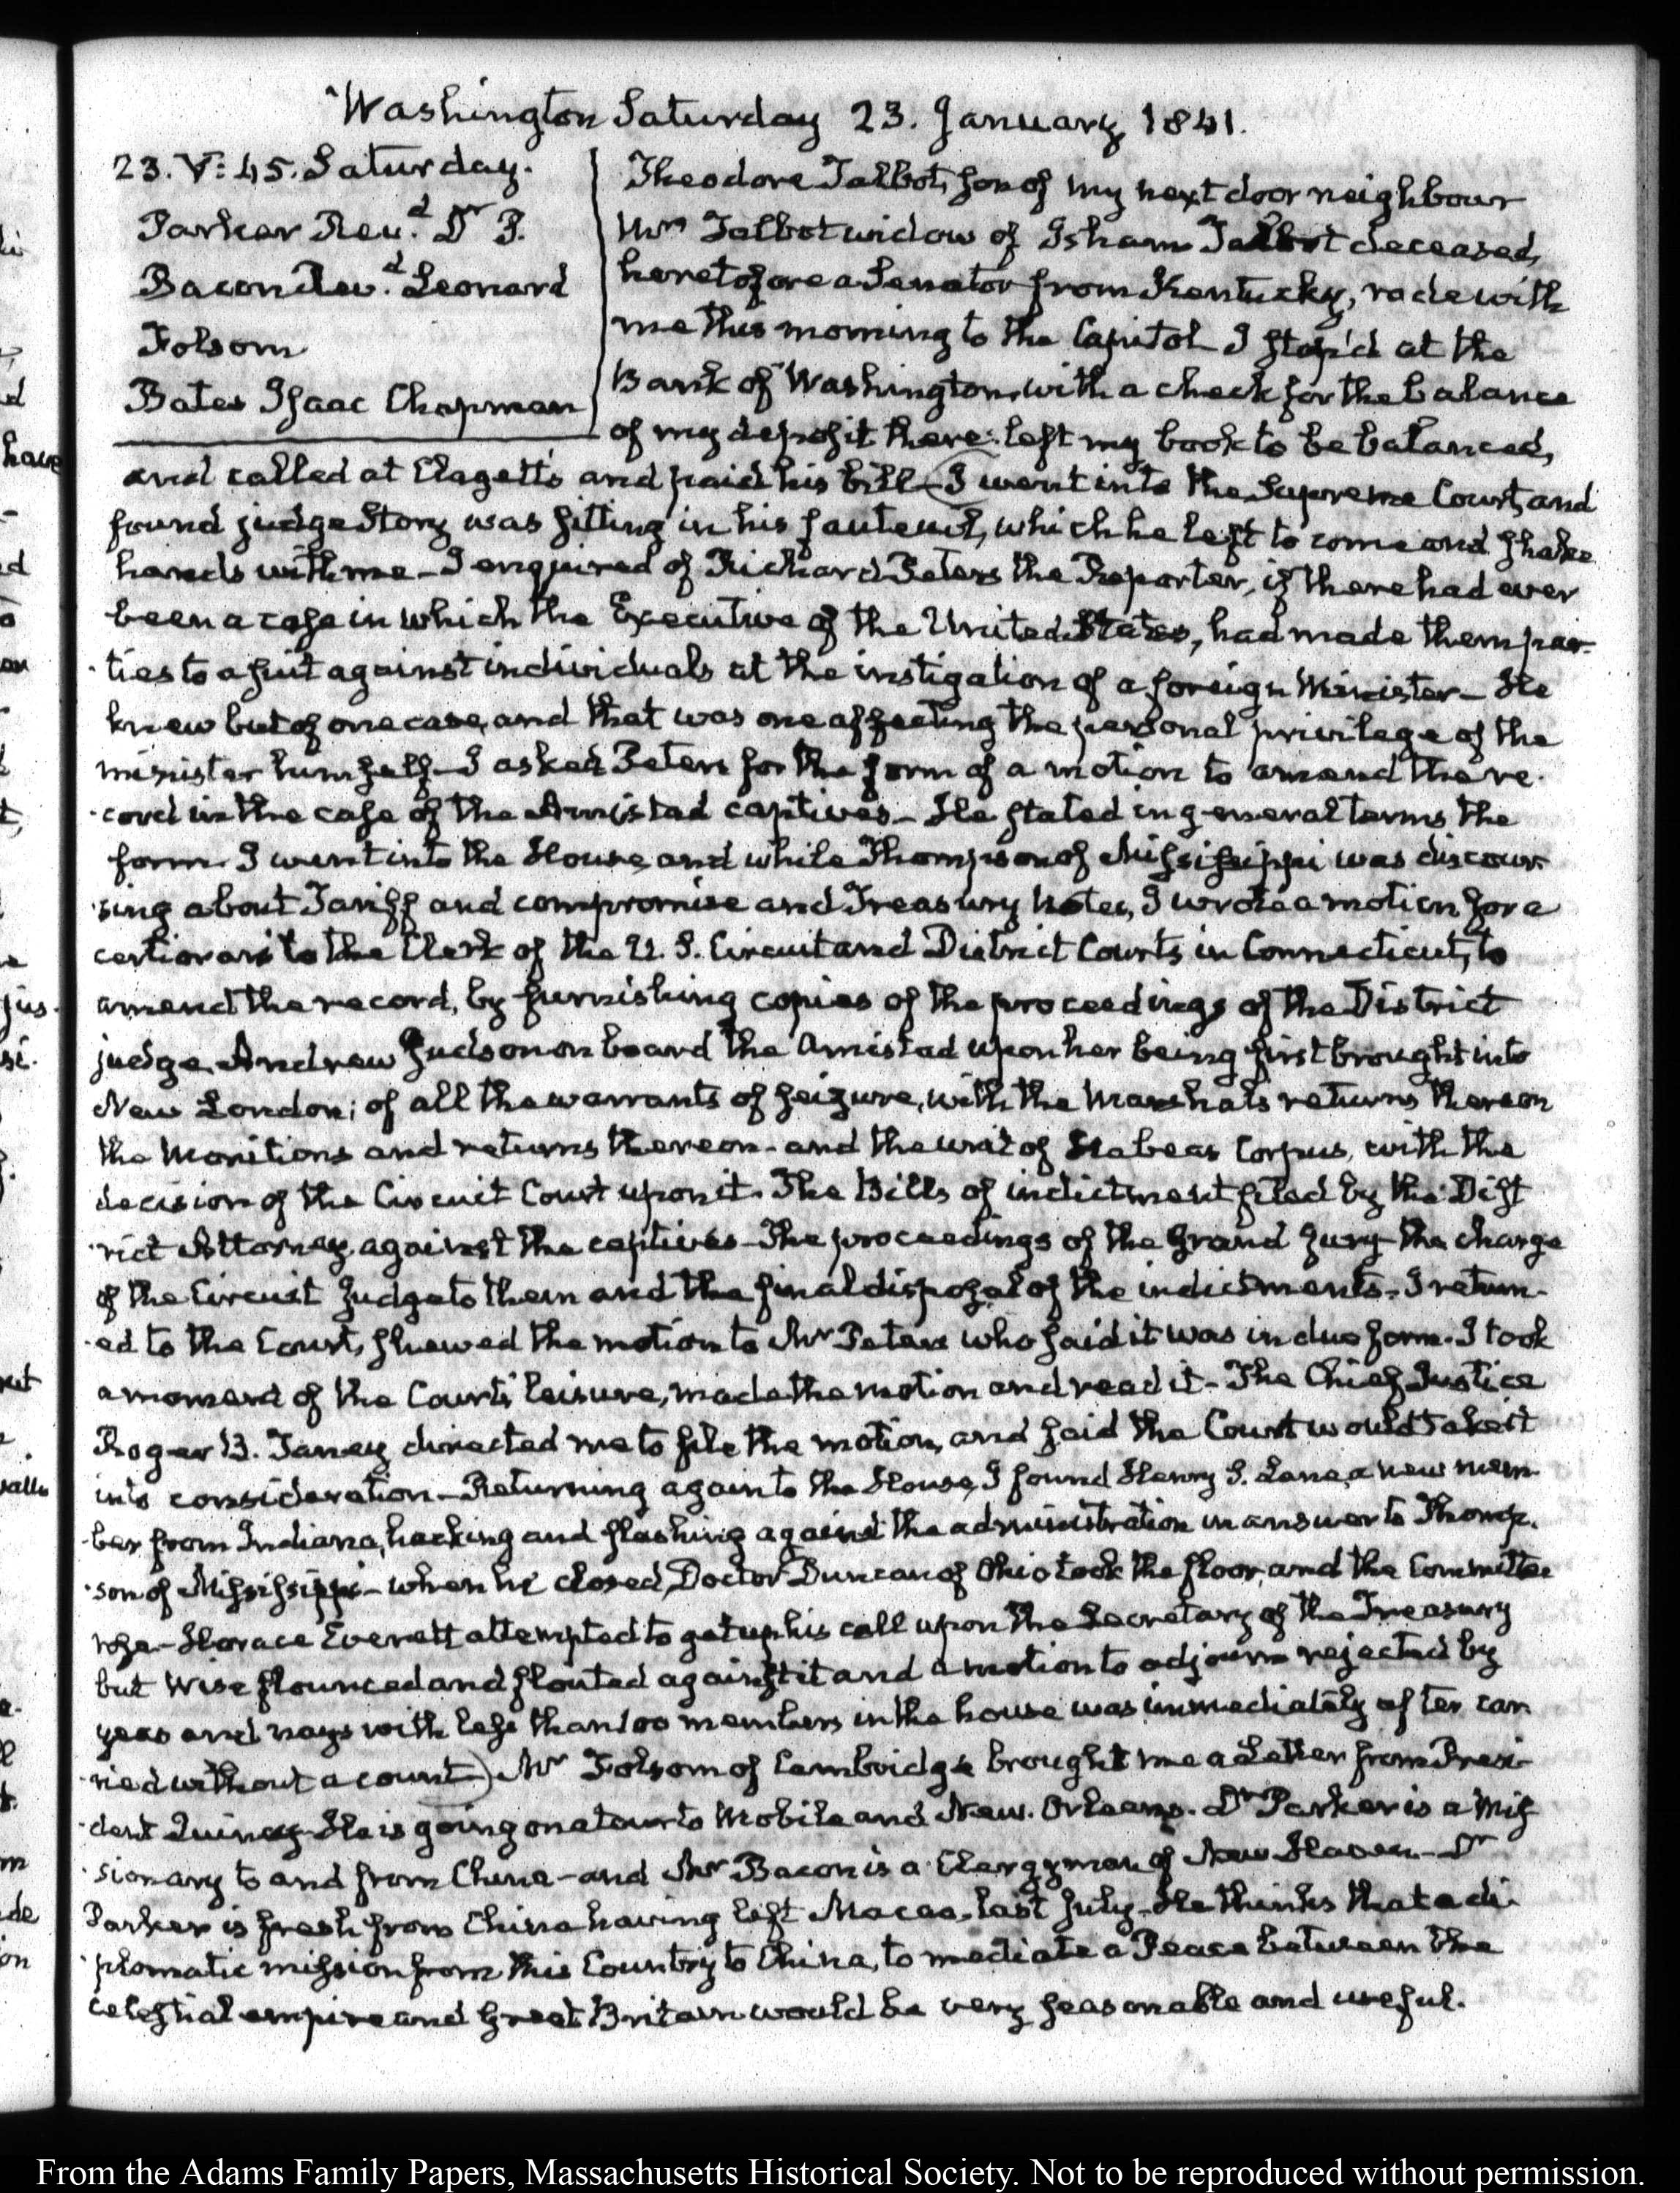 Washington Saturday 23. January 1841.
23. V: 45. Saturday.
Parker Rev.d Dr P.
Bacon Rev.d Leonard
Folsom
Bates Isaac Chapman
Theodore Talbot, son of my next door neighbour
Mrs Talbot widow of Isham Talbot deceased,
heretofore a Senator from Kentucky, rode with
me this morning to the Capitol I stop'd at the
Bank of Washington, with a check for the balance
of my deposit there: left my book to be balanced,
and called at Clagett's and paid his bill— (I went into the Supreme Court, and
found judge Story was sitting in his fauteuil, which he left to come and shake
hands with me— I enquired of Richard Peters the Reporter, if there had ever
been a case in which the Executive of the United States, had made them par-
ties to a suit against individuals at the instigation of a foreign Minister— He
knew but of one case, and that was one affecting the personal privilege of the
minister himself— I asked Peters for the form of a motion to amend the re-
cord in the case of the Amistad captives— He stated in general terms the
form. I went into the House, and while Thompson of Mississippi was discour-
sing about Tariff and compromise and Treasury Notes, I wrote a motion for a
certiorari to the Clerk of the U. S. Circuit and District Courts in Connecticut, to
amend the record, by furnishing copies of the proceedings of the District
judge Andrew Judson on board the Amistad upon her being first brought into
New London; of all the warrants of seizure, with the Marshal's returns thereon
the Monitions and returns thereon— and the writ of Habeas Corpus, with the
decision of the Circuit Court upon it. The Bills of indictment filed by the Dist
rict Attorney against the captives— The proceedings of the Grand Jury— the charge
of the Circuit Judge to them and the final disposal of the indictments— I return-
ed to the Court, shewed the motion to Mr Peters who said it was in due form. I took
a moment of the Court's leisure, made the motion and read it— The Chief Justice
Roger B. Taney directed me to file the motion, and said the Court would take it
into consideration— Returning again to the House, I found Henry S. Lane, a new mem-
ber from Indiana, hacking and slashing against the administration in answer to Thomp-
son of Mississippi— when he closed, Doctor Duncan of Ohio took the floor, and the Committee
rose— Horace Everett attempted to get up his call upon the Secretary of the Treasury
but Wise flounced and flouted against it and a motion to adjourn rejected by
yeas and nays with less than 100 members in the house was immediately after car-
ried without a count) Mr Folsom of Cambridge brought me a Letter from Presi-
dent Quincy— He is going on a tour to Mobile and New. Orleans. Dr Parker is a Mis
sionary to and from China— and Mr Bacon is a Clergyman of New Haven— Dr
Parker is fresh from China having left Macao, last July— He thinks that a di-
plomatic mission from this Country to China, to mediate a Peace between the
celestial empire and Great Britain would be very seasonable and useful.
From the Adams Family Papers, Massachusetts Historical Society. Not to be reproduced without permission.